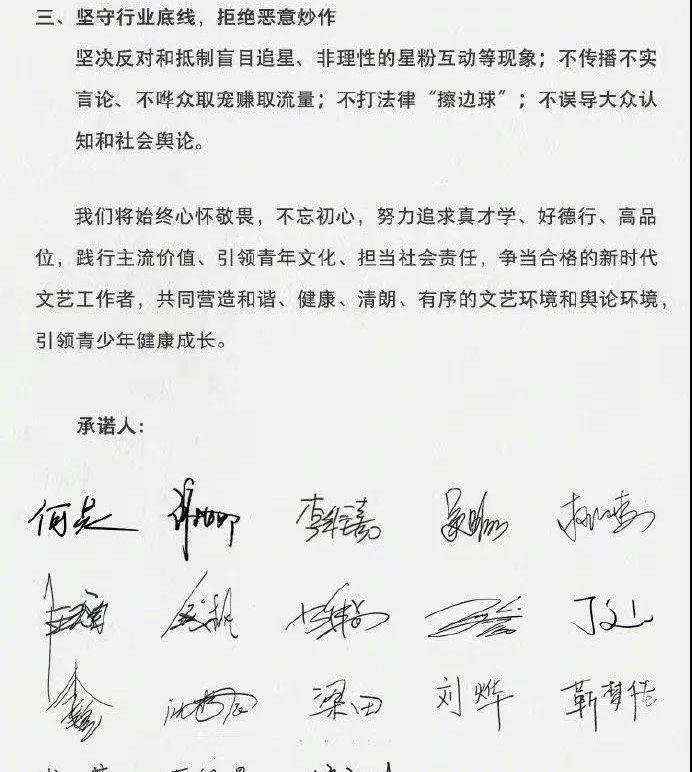 三、坚守行业底线，拒绝恶意炒作
坚决反对和抵制盲目追星、非理性的星粉互动等现象；不传播不实
言论、不哗众取宠赚取流量；不打法律“擦边球”；不误导大众认
知和社会舆论。
我们将始终心怀敬畏，不忘初心，努力追求真才学、好德行、高品
位，践行主流价值、引领青年文化、担当社会责任，争当合格的新时代
文艺工作者，共同营造和谐、健康、清朗、有序的文艺环境和舆论环境，
引领青少年健康成长。
承诺人：
何炅
丁文山
梁田 刘烨 靳梦佳